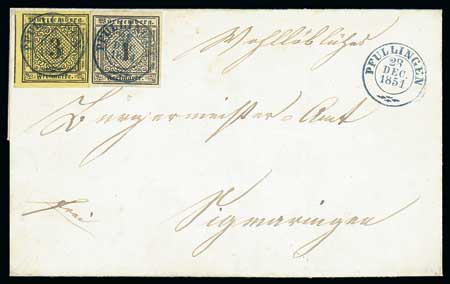 Württemberg. Württemberg.
3 1
Wohllöbliches
PFULLINGEN
28
DEC.
1851
Bürgermeister-Amt
frei
Sigmaringen